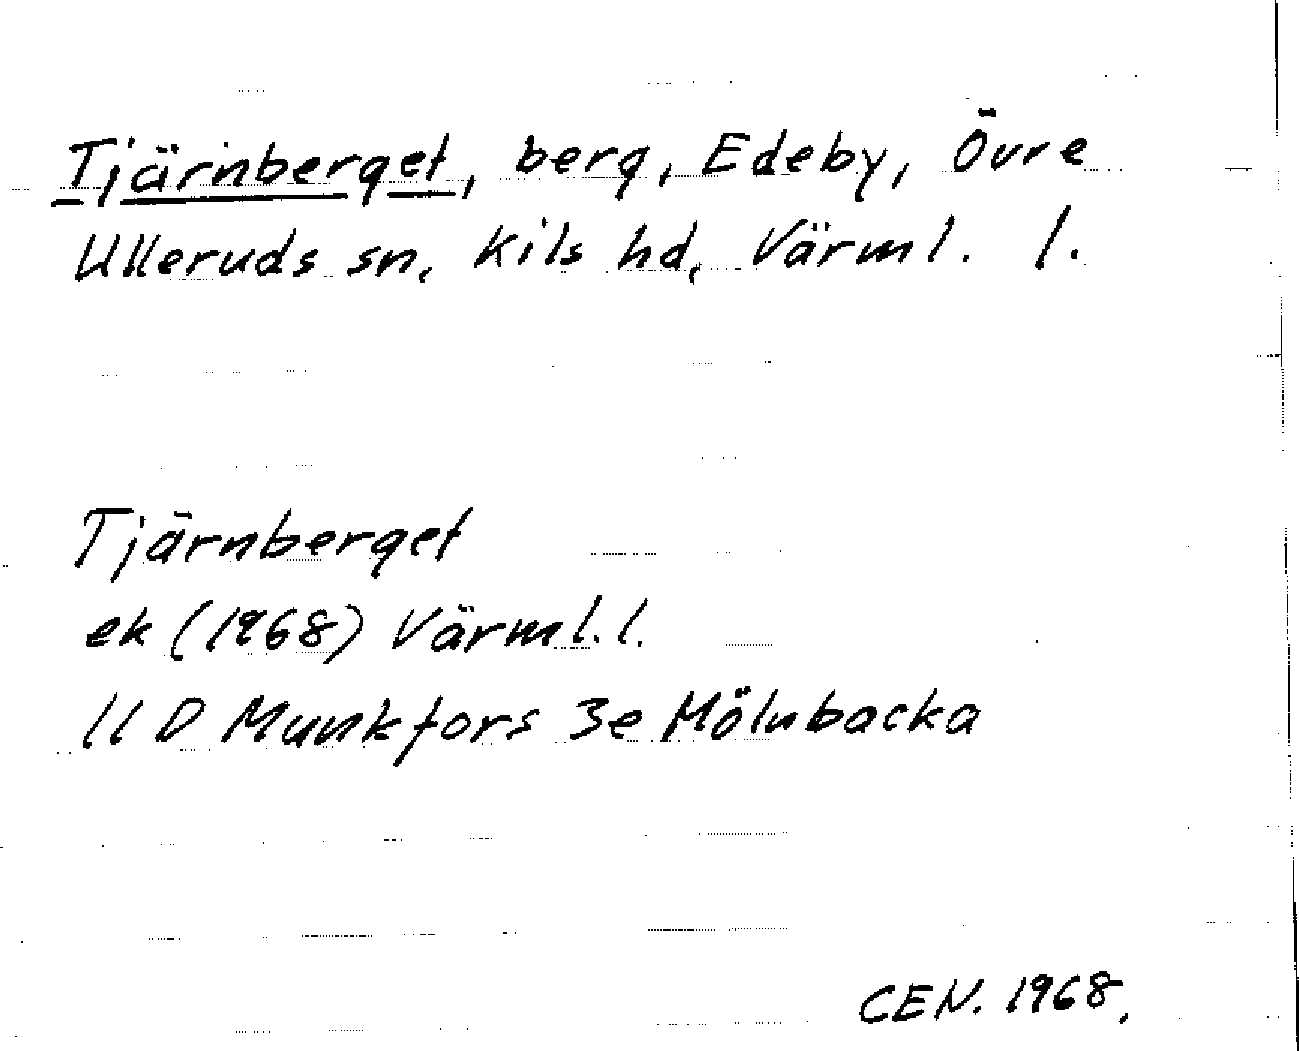 Tjärnberget, berg, Edeby, Övre
Ulleruds sn, Kils hd, Värml. l.
Tjärnberget
ek (1968) Värml. l.
11 D Munkfors 3e Mölnbacka
CEN. 1968.